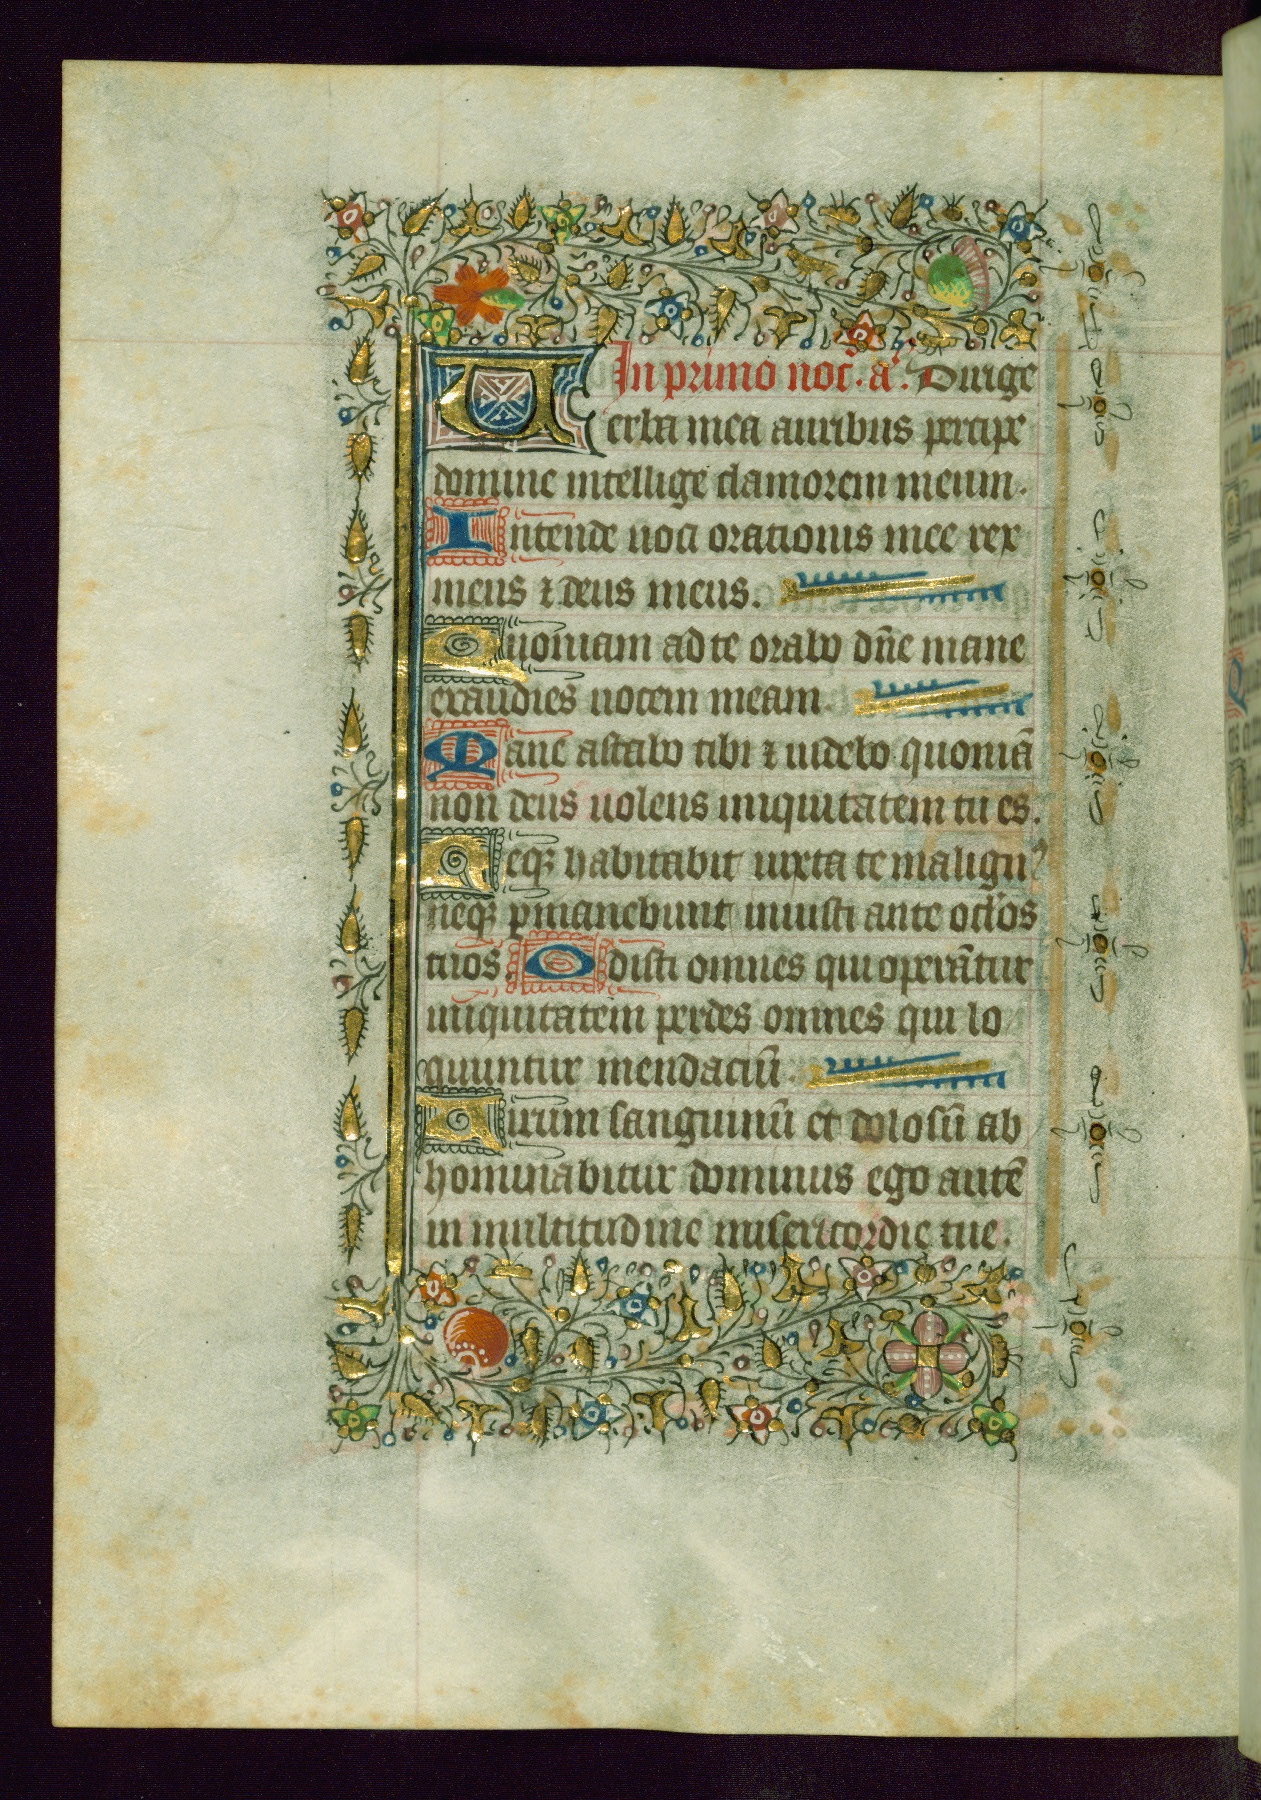 In primo noc̄. a᷉. Dirige
Verba mea auribus percipe
domine intellige clamorem meum.
Intende uoci orationis mee rex
meus ⁊ deus meus.
Quoniam ad te orabo dn̄e mane
exaudies uocem meam.
Mane astabo tibi ⁊ uidebo quoniā
non deus uolens iniquitatem tu es.
Neqꝫ habitabit iuxta te malignꝰ
neqꝫ ꝑmanebunt iniusti ante oc̄los
tuos. Odisti omnes qui operāntur
iniquitatem perdes omnes qui lo
quuntur mendaciū.
Uirum sanguinū et dolosū ab
hominabitur dominus ego autē
in multitudine misericordie tue.